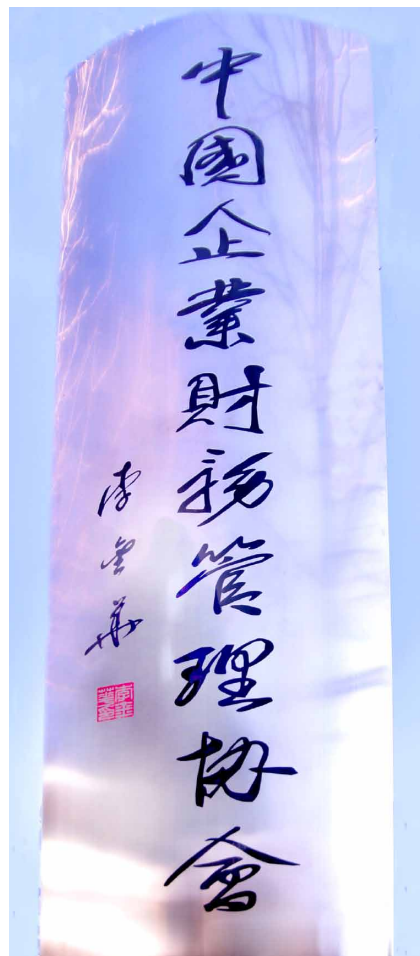 中國企業財務管理協會
李金華